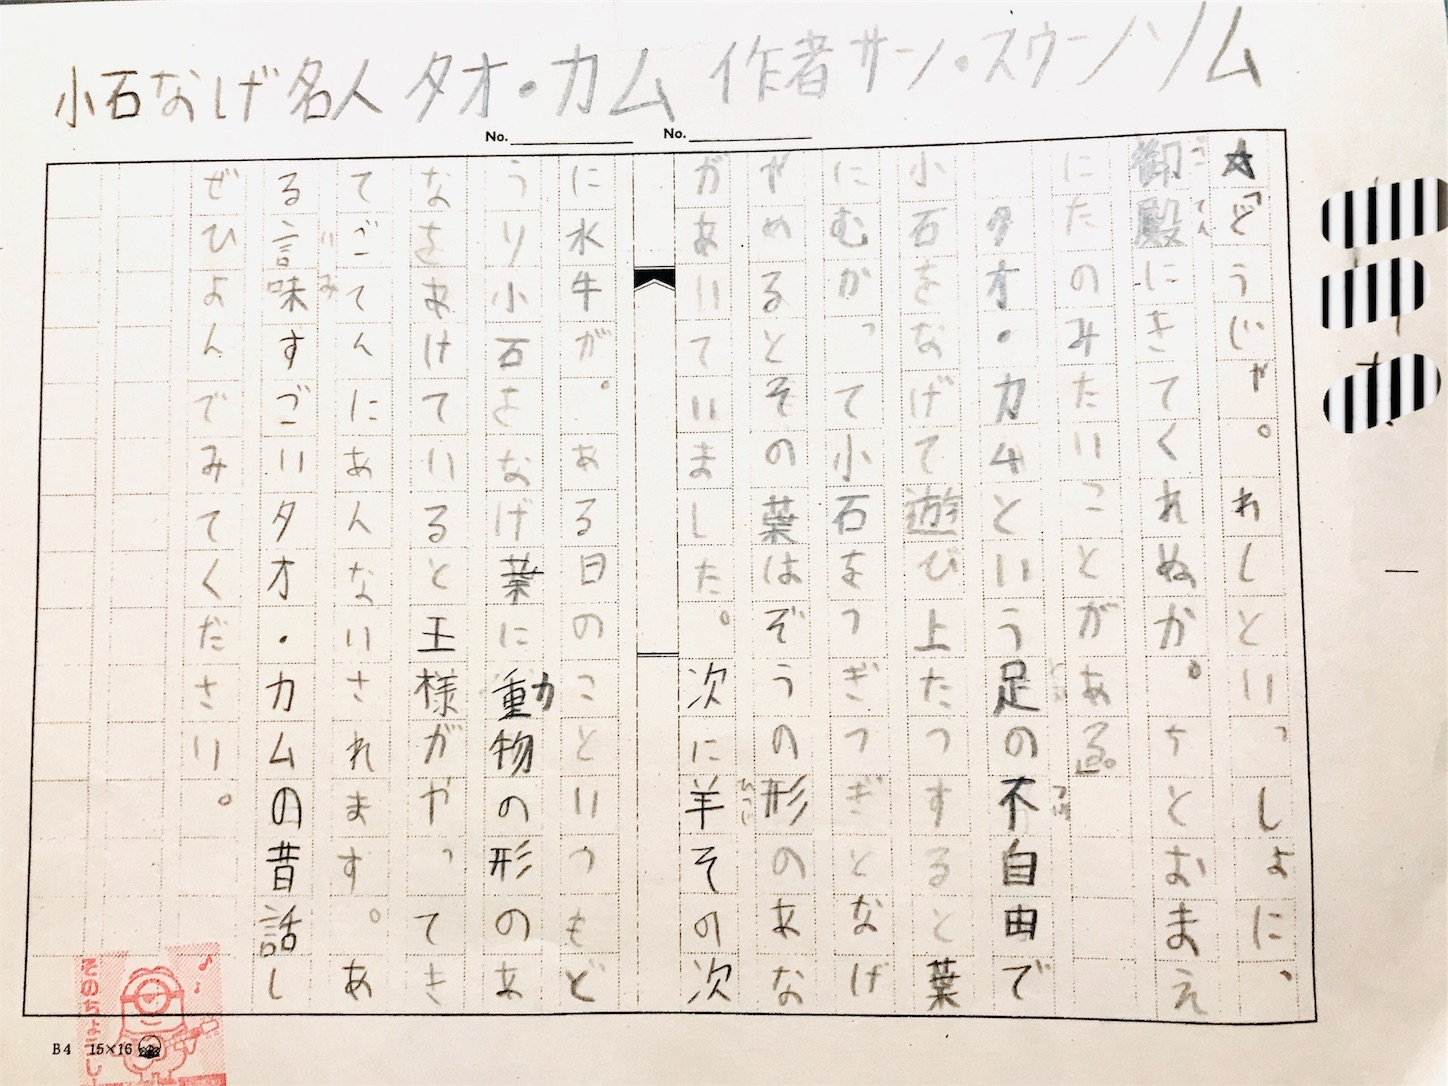 小石なげ名人 タオ・カム 作者 サン・スウーノソム
No. No.
☆「どうじゃ。れしといっしょに、
御殿にきてくれぬか。ちとおまえ
にたのみたいことがある。」
タオ・カムという足の不自由で
小石をなげて遊び上たつすると葉
にむかって小石をつぎつぎとなげ
やめるとその葉はぞうの形のあな
があいていました。次に羊その次
に水牛が。ある日のこといつもど
うり小石をなげ葉に動物の形のあ
なをあけていると王様がやってき
てごてんにあんないされます。あ
る意味すごいタオ・カムの昔話し
ぜひよんでみてください。
B4 15×16